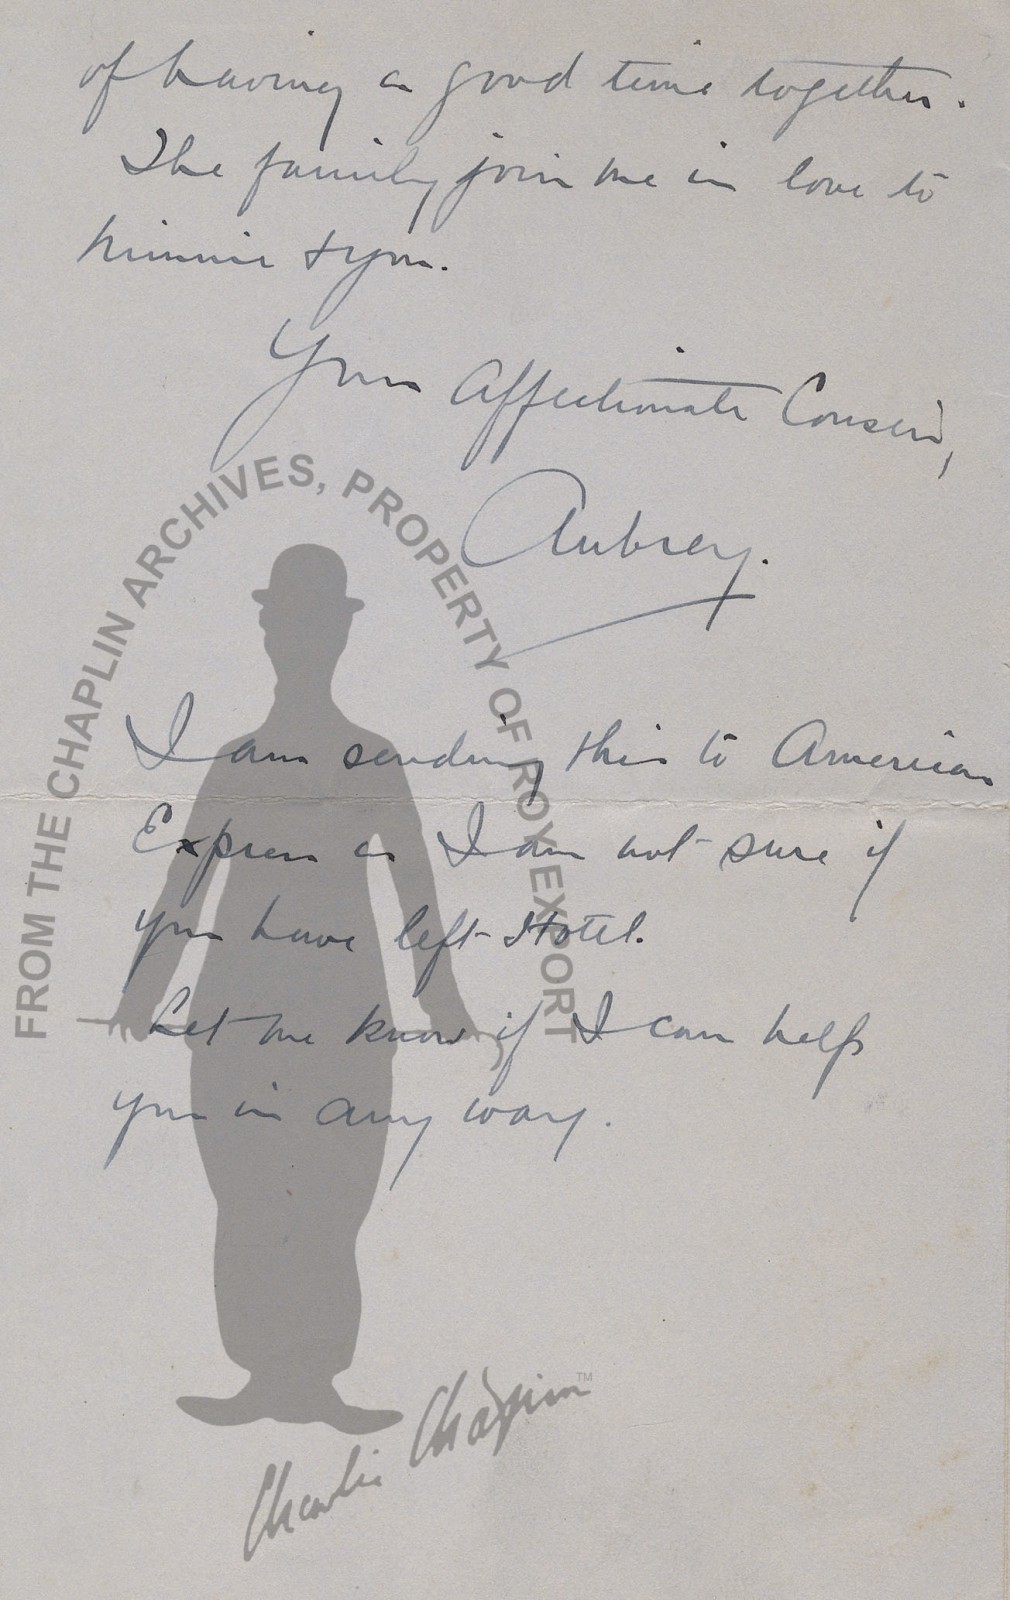 of having a good time together.
The family join me in love to
Minnie & you.
Your Affectionate Cousin,
Aubrey.
I am sending this to American
Express as I am not sure if
you have left Hotel.
Let me know if I can help
you in any way.
FROM THE CHAPLIN ARCHIVES, PROPERTY OF ROY EXPORT
Charlie Chaplin™